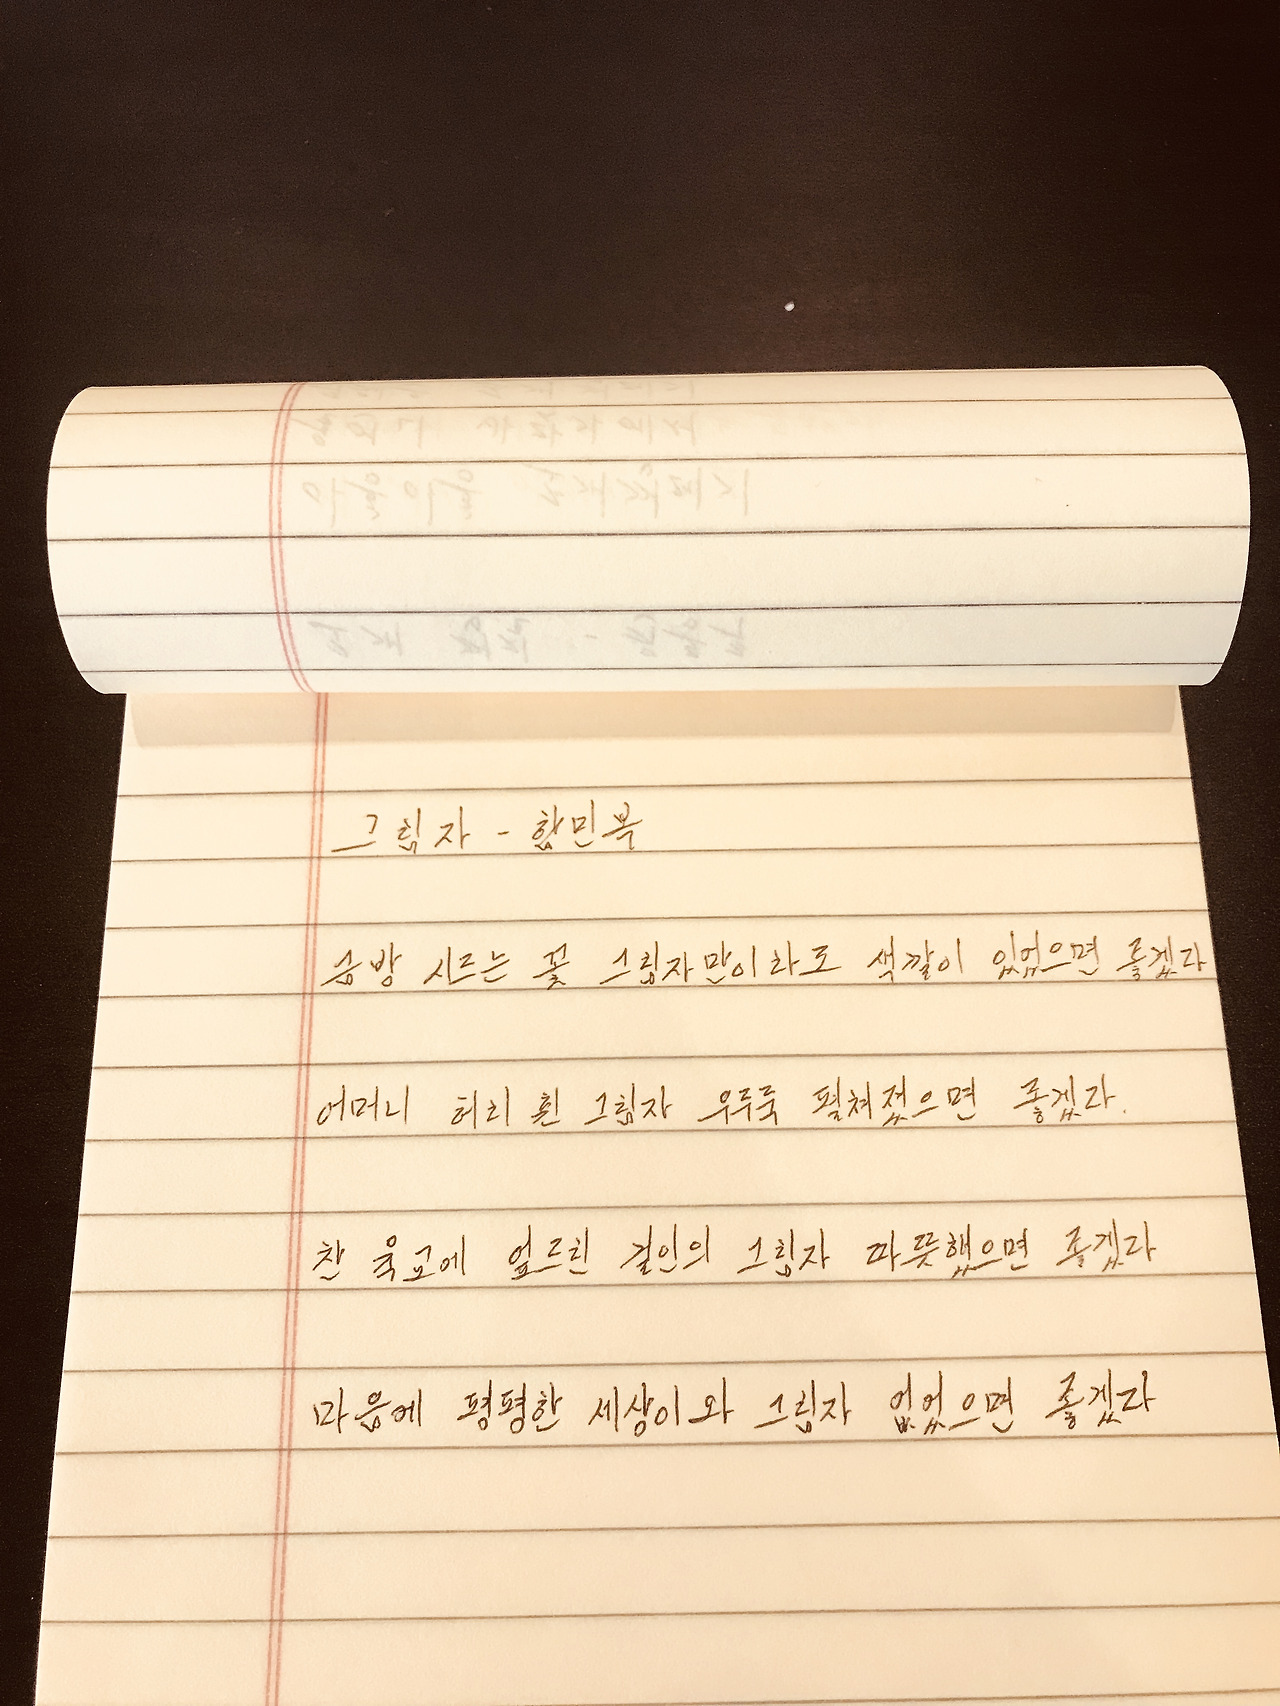 그림자 - 함민복
금방 시드는 꽃 그림자만이라도 색깔이 있었으면 좋겠다
어머니 허리 휜 그림자 우두둑 펼쳐졌으면 좋겠다.
찬 육교에 엎드린 걸인의 그림자 따뜻했으면 좋겠다
마음에 평평한 세상이 와 그림자 없었으면 좋겠다